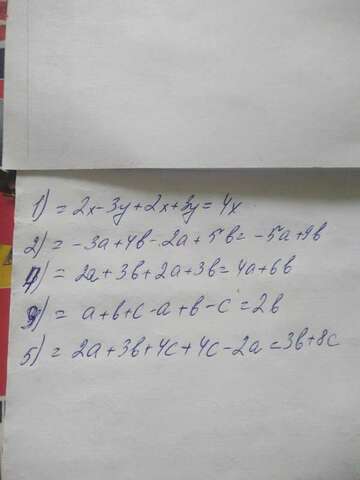 1) = 2x-3y+2x+3y=4x
2) = -3a+4b-2a+5b=-5a+9b
4) = 2a+3b+2a+3b=4a+6b
3) = a+b+c-a+b-c=2b
5) = 2a+3b+4c+4c-2a=3b+8c